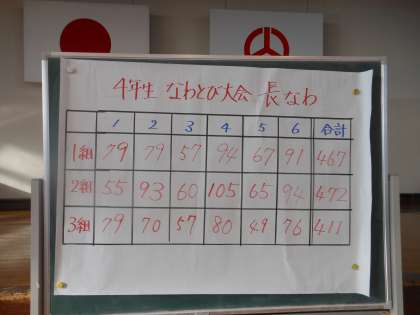 4年生 なわとび大会 長なわ
1 2 3 4 5 6 合計
1組 79 79 57 94 67 91 467
2組 55 93 60 105 65 94 472
3組 79 70 57 80 49 76 411